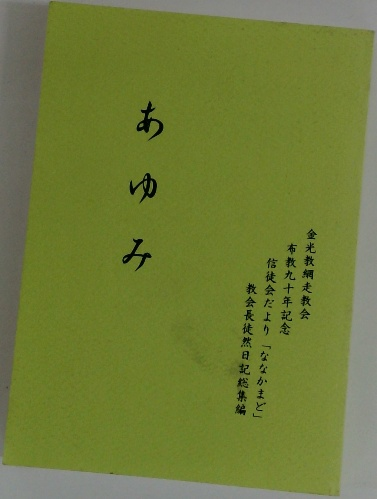 あゆみ
金光教網走教会
布教九十年記念
信徒会だより「ななかまど」
教会長徒然日記総集編